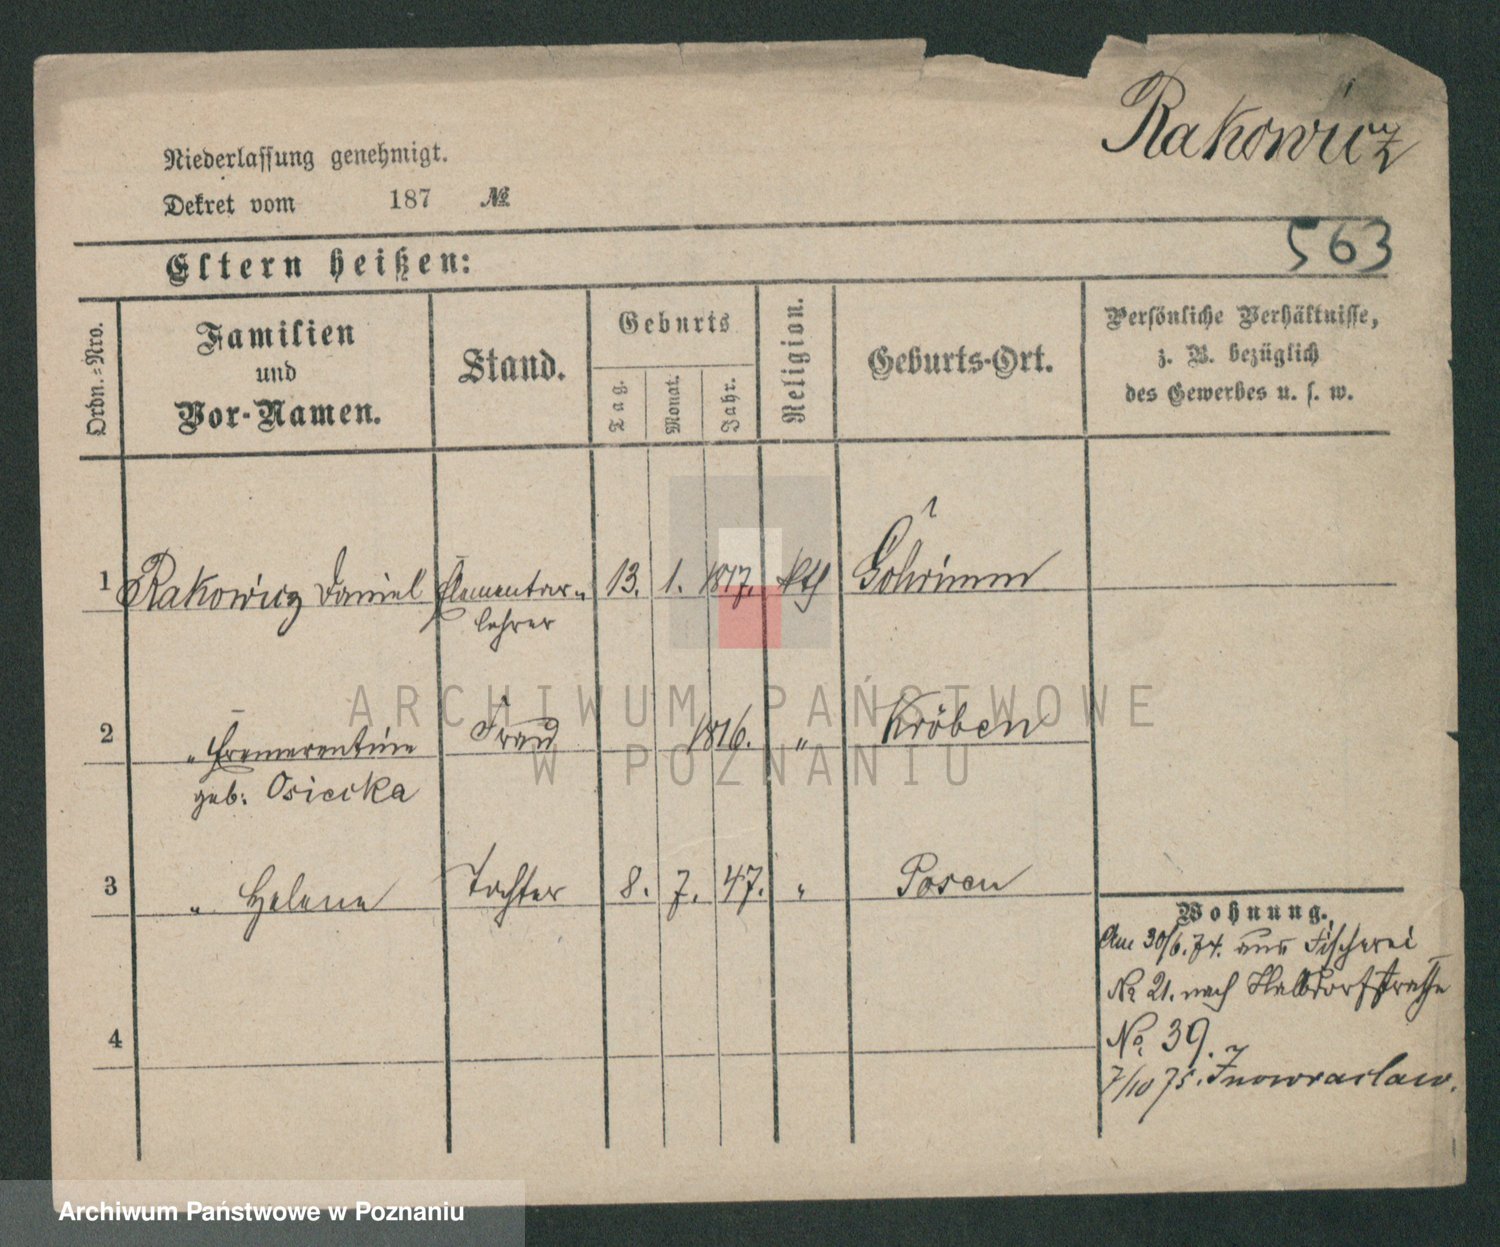 Rakowicz
Niederlassung genehmigt.
Dekret vom 187 №
563
Eltern heißen:
Ordn.=Nro.
Familien
und
Vor-Namen.
Stand.
Geburts
Tag.
Monat.
Jahr.
Religion.
Geburts-Ort.
Persönliche Verhältnisse,
z. B. bezüglich
des Gewerbes u. s. w.
1 Rakowicz Daniel Elementar- 13. 1. 1817. kth
lehrer
2 " Emerentine Frau 1816. " Kröben
geb: Osiecka
3 " Helene Tochter 8. 7. 47. " Posen
4
Wohnung.
Am 30/6. 74. aus Fischerei
No 21. nach Halbdorfstraße
No. 39.
7/10 75. Inowraclaw.
ARCHIWUM PAŃSTWOWE
W POZNANIU
Archiwum Państwowe w Poznaniu